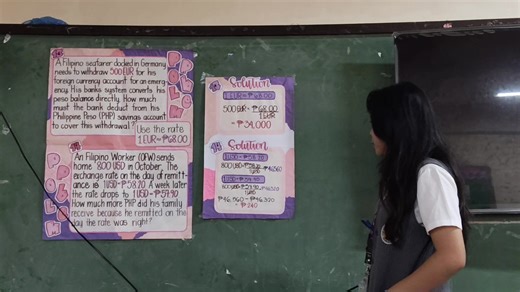 A Filipino seafarer docked in Germany
needs to withdraw 500 EUR for his
foreign currency account for an emerg-
ency. His banks system converts his
peso balance directly. How much
must the bank deduct from his
Philippine Peso (PHP) savings account
to cover this withdrawal?
Use the rate
1 EUR = ₱68.00
PROBLEM
An Filipino Worker (OFW) sends
home 800 USD in October, The
exchange rate on the day of remitt-
ance is 1 USD = ₱58.20 A week later
the rate drops to 1 USD =
How much more PHP did his family
receive because he remitted on the
day the rate was right?
PROBLEM
Solution
1 EUR = ₱68.00
500 EUR × ₱68.00
1 EUR
= ₱34,000
Solution
1 USD = ₱58.20
800 USD
1 USD
800 USD
₱46,560 -
= ₱240